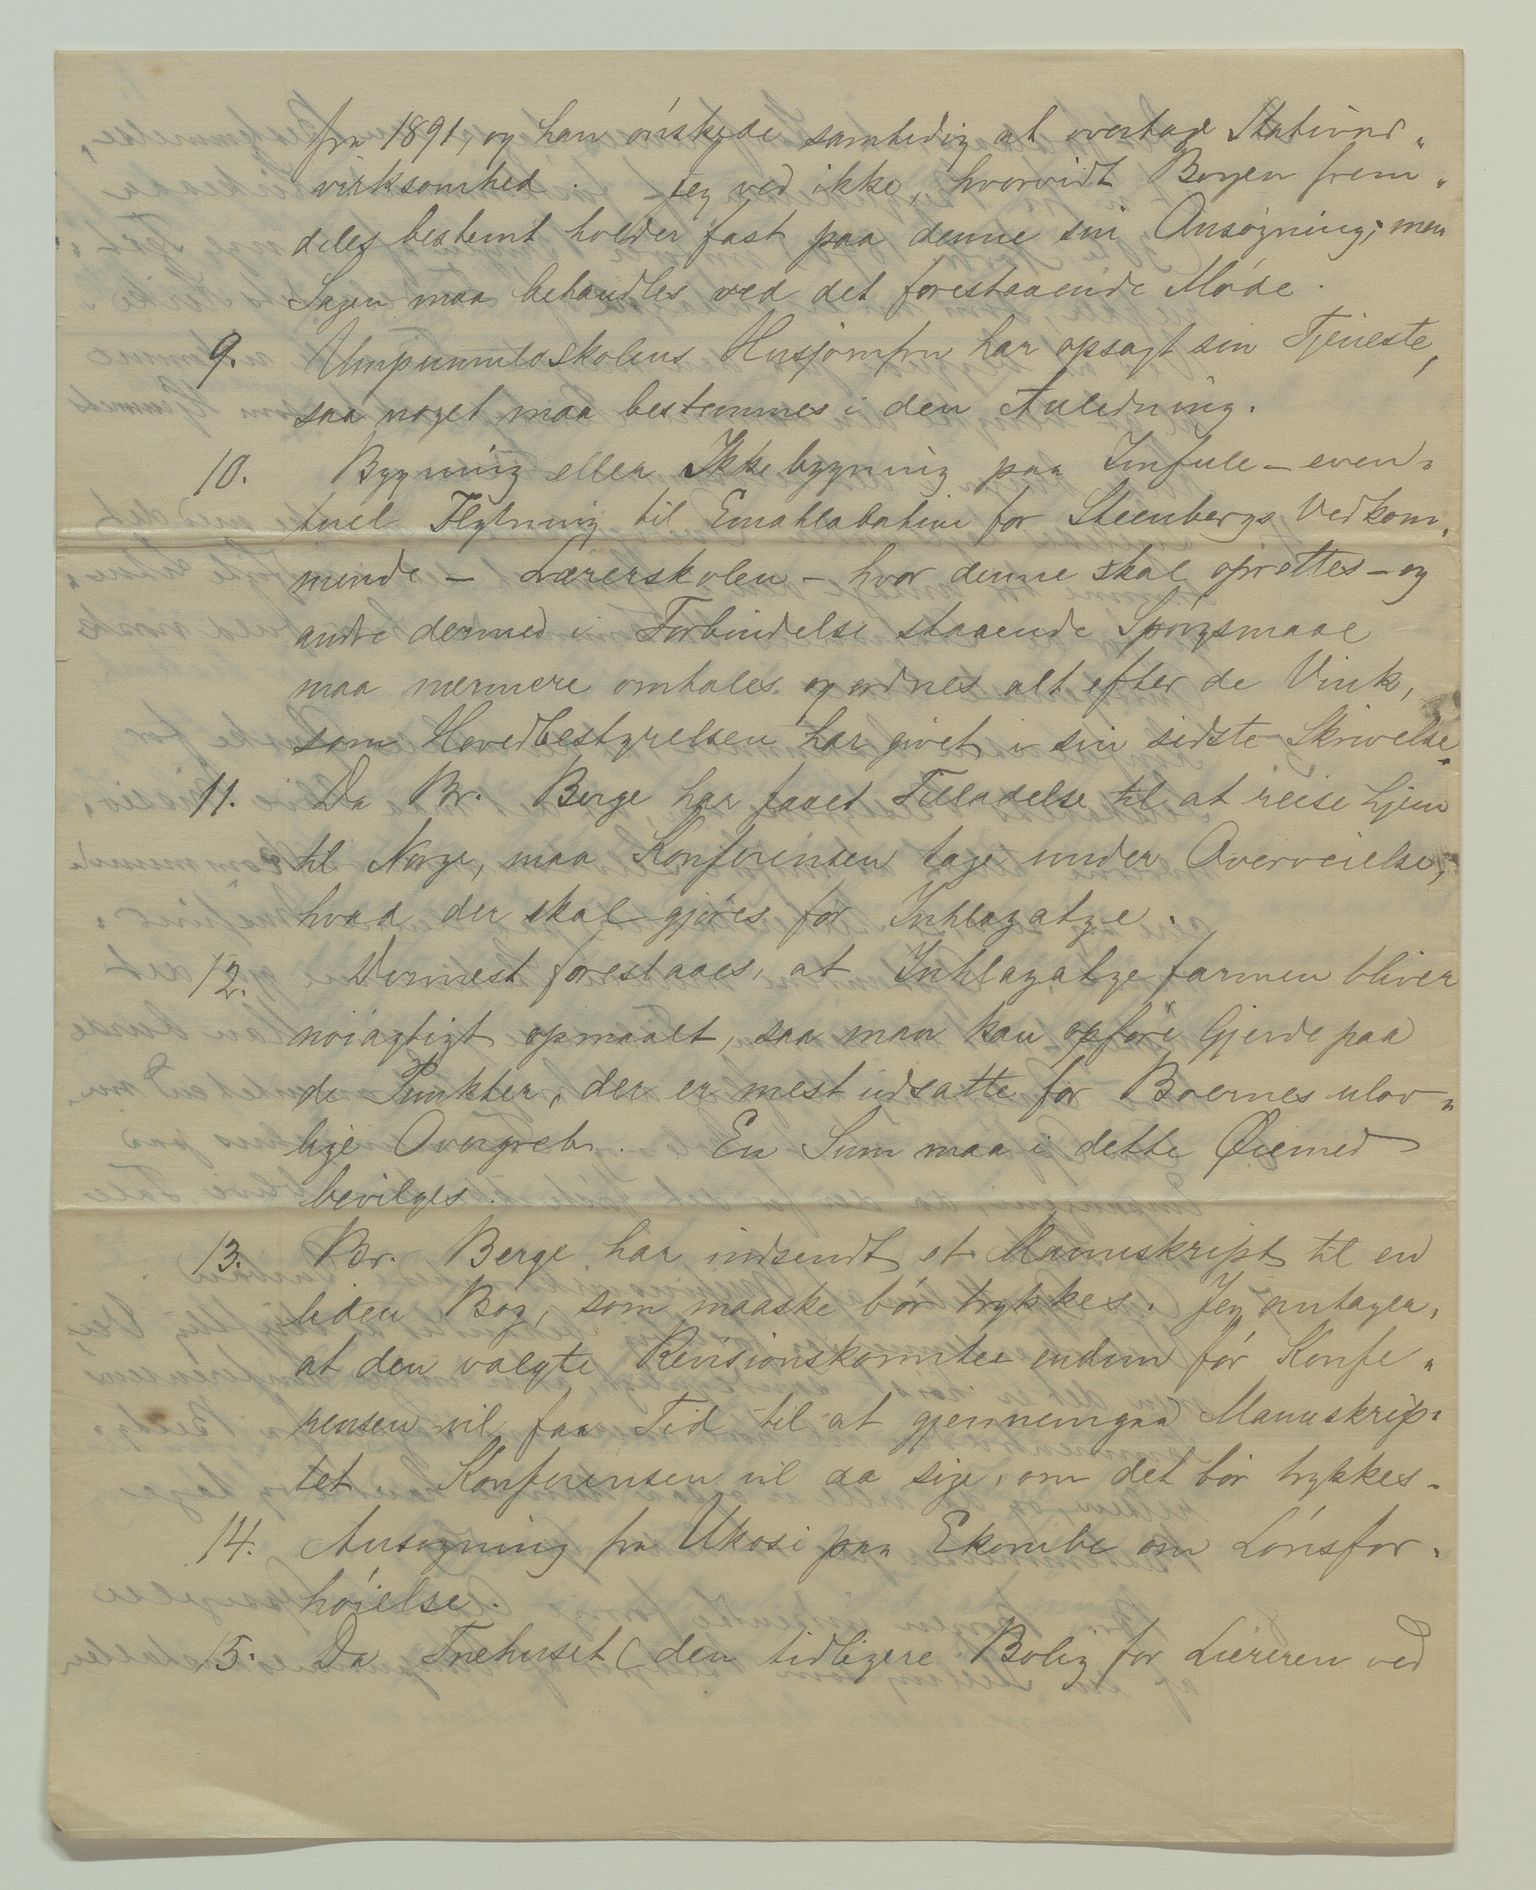 fra 1891, og han ønskede samtidig at overtage Stations„
virksomhed. Jeg ved ikke, hvorvidt Borgen frem„
deles bestemt holder fast paa denne sin Ansøgning; men
Sagen maa behandles ved det forestaaende Møde.
9. Umpumuloskolens Husjomfru har opsagt sin Tjeneste,
saa noget maa bestemmes i den Anledning.
10. Bygning eller Ikkebygning paa Imfule – even„
tuel Flytning til Emahlabatini for Steenbergs Vedkom„
mende – Lærerskolen – hvor denne skal oprettes – og
andre dermed i Forbindelse staaende Spørgsmaal
maa nærmere omtales og ordnes alt efter de Vink,
som Hovedbestyrelsen har givet i sin sidste Skrivelse.
11. Da Br. Berge har faaet Tilladelse til at reise hjem
til Norge, maa Konferensen tage under Overveielse,
hvad der skal gjøres for Inhlazatze.
12. Dernest foreslaaes, at Inhlazatzefarmen bliver
nøiagtigt opmaalt, saa man kan opføre Gjerde paa
de Punkter, der er mest udsatte for Boernes ulov„
lige Overgreb. En Sum maa i dette Øiemed
bevilges.
13. Br. Berge har indsendt et Manuskript til en
liden Bog, som maaske bør trykkes. Jeg antager,
at den valgte Revisionskomite endnu før Konfe„
rensen vil faa Tid til at gjennemgaa Manuskrip„
tet. Konferensen vil da sige, om det bør trykkes.
14. Ansøgning fra Ukosi paa Ekombe om Lønsfor„
høielse.
15. Da Træhuset (den tidligere Bolig for Læreren ved